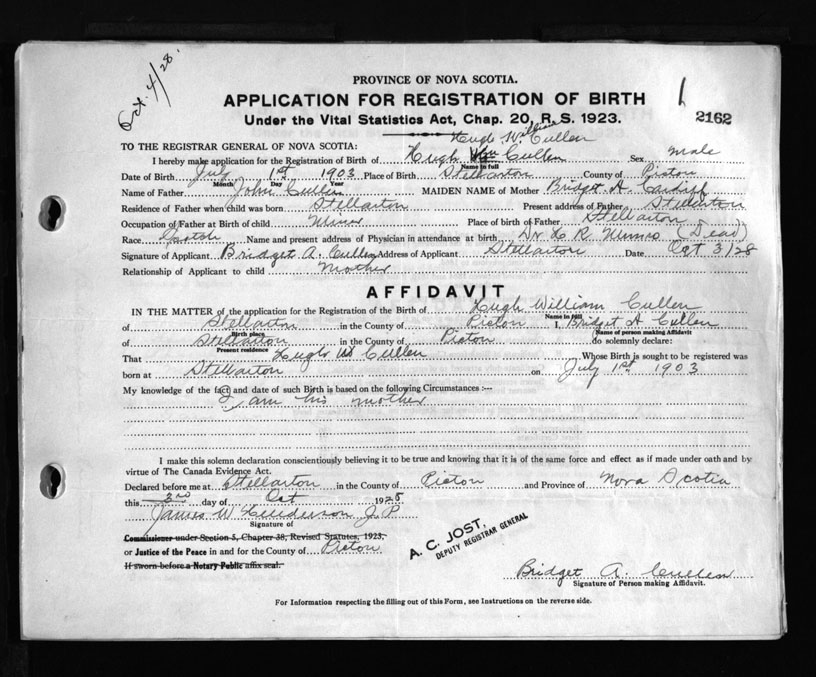 Oct. 4/28.
PROVINCE OF NOVA SCOTIA.
APPLICATION FOR REGISTRATION OF BIRTH
2162
Under the Vital Statistics Act, Chap. 20, R. S. 1923.
Hugh William Cullen
TO THE REGISTRAR GENERAL OF NOVA SCOTIA:
I hereby make application for the Registration of Birth of Hugh Wm Cullen Sex Male
Name in full
Date of Birth July 1st 1903 Place of Birth Stellarton County of Pictou
Month Day Year
Name of Father John Cullen MAIDEN NAME of Mother Bridget A
Residence of Father when child was born Stellarton Present address of Father Stellarton
Occupation of Father at Birth of child Miner Place of birth of Father Stellarton
Race Scotch Name and present address of Physician in attendance at birth Dr (Dead)
Signature of Applicant Bridget A. Cullen Address of Applicant Stellarton Date Oct 3/28
Relationship of Applicant to child Mother
AFFIDAVIT
IN THE MATTER of the application for the Registration of the Birth of Hugh William Cullen
Name in full
of Stellarton in the County of Pictou I, Bridget A Cullen
Birth place (Name of person making Affidavit)
of Stellarton in the County of Pictou do solemnly declare:
Present residence
That Hugh W Cullen Whose Birth is sought to be registered was
born at Stellarton on July 1st 1903
My knowledge of the fact and date of such Birth is based on the following Circumstances :—
I am his mother
I make this solemn declaration conscientiously believing it to be true and knowing that it is of the same force and effect as if made under oath and by
virtue of The Canada Evidence Act.
Declared before me at Stellarton in the County of Pictou and Province of Nova Scotia
this 3rd day of Oct 1928
James W Henderson J P
Signature of
Commissioner under Section 5, Chapter 38, Revised Statutes, 1923,
or Justice of the Peace in and for the County of Pictou
If sworn before a Notary Public affix seal.
A. C. JOST,
DEPUTY REGISTRAR GENERAL
Bridget A. Cullen
Signature of Person making Affidavit.
For Information respecting the filling out of this Form, see Instructions on the reverse side.